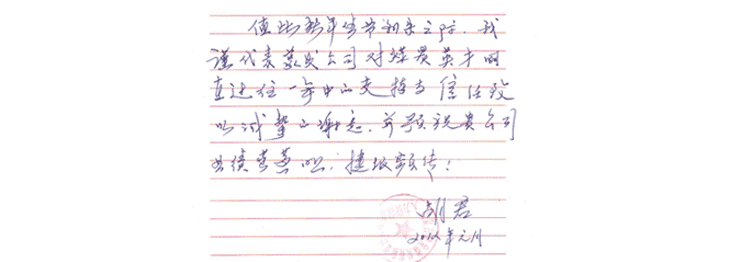 值此新年佳节到来之际，我
谨代表蒙发公司对煤炭英才网
在过往一年中的支持与信任致
以诚挚的谢意，并预祝贵公司
业绩蒸蒸 捷报频传！
胡君
年元月